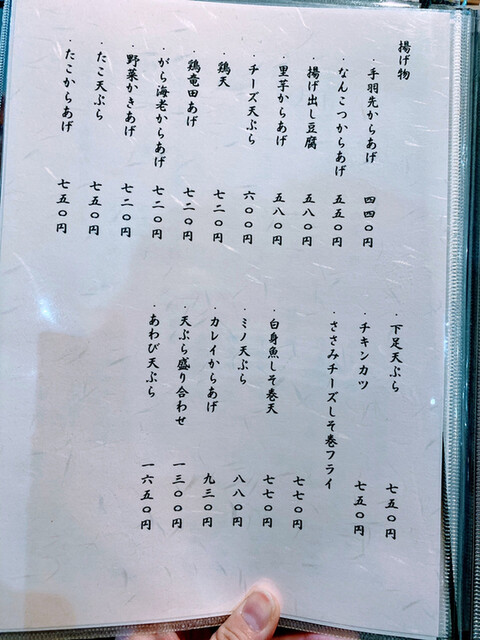 揚げ物
・手羽先からあげ 四四〇円
・なんこつからあげ 五五〇円
・揚げ出し豆腐 五八〇円
・里芋からあげ 五八〇円
・チーズ天ぷら 六〇〇円
・鶏天 七二〇円
・鶏竜田あげ 七二〇円
・がら海老からあげ 七二〇円
・野菜かきあげ 七二〇円
・たこ天ぷら 七五〇円
・たこからあげ 七五〇円
・下足天ぷら 七五〇円
・チキンカツ 七五〇円
・ささみチーズしそ巻フライ 七七〇円
・白身魚しそ巻天 七七〇円
・ミノ天ぷら 八八〇円
・カレイからあげ 九三〇円
・天ぷら盛り合わせ 一三〇〇円
・あわび天ぷら 一六五〇円